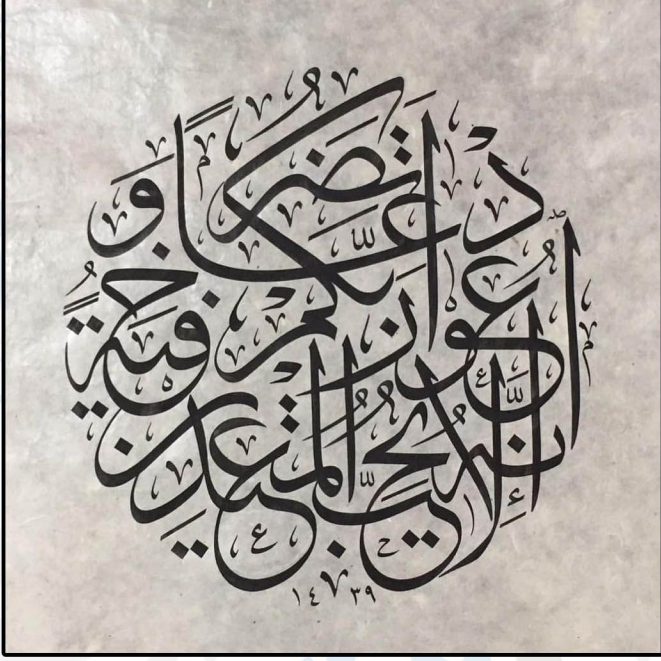 اُدْعُوا رَبَّكُمْ تَضَرُّعًا وَخُفْيَةً إِنَّهُ لَا يُحِبُّ الْمُعْتَدِينَ
١٤٣٩